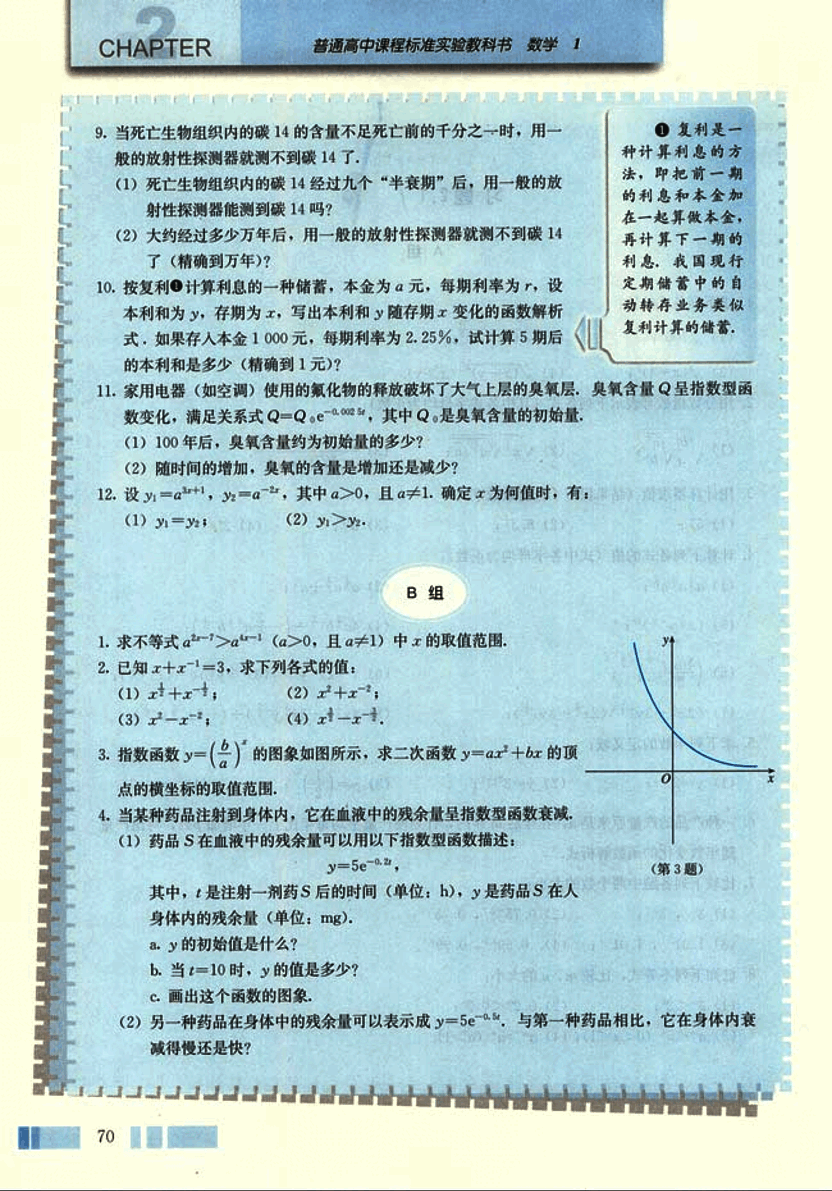 2
CHAPTER
普通高中课程标准实验教科书 数学 1
9. 当死亡生物组织内的碳 14 的含量不足死亡前的千分之一时，用一
般的放射性探测器就测不到碳 14 了.
(1) 死亡生物组织内的碳 14 经过九个“半衰期”后，用一般的放
射性探测器能测到碳 14 吗？
(2) 大约经过多少万年后，用一般的放射性探测器就测不到碳 14
了（精确到万年）？
10. 按复利❶计算利息的一种储蓄，本金为 a 元，每期利率为 r，设
本利和为 y，存期为 x，写出本利和 y 随存期 x 变化的函数解析
式. 如果存入本金 1 000 元，每期利率为 2.25%，试计算 5 期后
的本利和是多少（精确到 1 元）？
❶ 复利是一
种计算利息的方
法，即把前一期
的利息和本金加
在一起算做本金，
再计算下一期的
利息. 我国现行
定期储蓄中的自
动转存业务类似
复利计算的储蓄.
11. 家用电器（如空调）使用的氟化物的释放破坏了大气上层的臭氧层. 臭氧含量 Q 呈指数型函
数变化，满足关系式 Q=Q₀e^{-0.002 5t}，其中 Q₀是臭氧含量的初始量.
(1) 100 年后，臭氧含量约为初始量的多少？
(2) 随时间的增加，臭氧的含量是增加还是减少？
12. 设 y₁=a^{3x+1}，y₂=a^{-2x}，其中 a>0，且 a≠1. 确定 x 为何值时，有：
(1) y₁=y₂； (2) y₁>y₂.
B 组
1. 求不等式 a^{2x-7}>a^{4x-1}（a>0，且 a≠1）中 x 的取值范围.
2. 已知 x+x^{-1}=3，求下列各式的值：
(1) x^{1/2}+x^{-1/2}； (2) x²+x^{-2}；
(3) x²-x^{-2}； (4)
3. 指数函数 y=(b/a)^x 的图象如图所示，求二次函数 y=ax²+bx 的顶
点的横坐标的取值范围.
y
O
x
(第 3 题)
4. 当某种药品注射到身体内，它在血液中的残余量呈指数型函数衰减.
(1) 药品 S 在血液中的残余量可以用以下指数型函数描述：
y=5e^{-0.2t}，
其中，t 是注射一剂药 S 后的时间（单位：h），y 是药品 S 在人
身体内的残余量（单位：mg）.
a. y 的初始值是什么？
b. 当 t=10 时，y 的值是多少？
c. 画出这个函数的图象.
(2) 另一种药品在身体中的残余量可以表示成 y=5e^{-0.5t}. 与第一种药品相比，它在身体内衰
减得慢还是快？
70